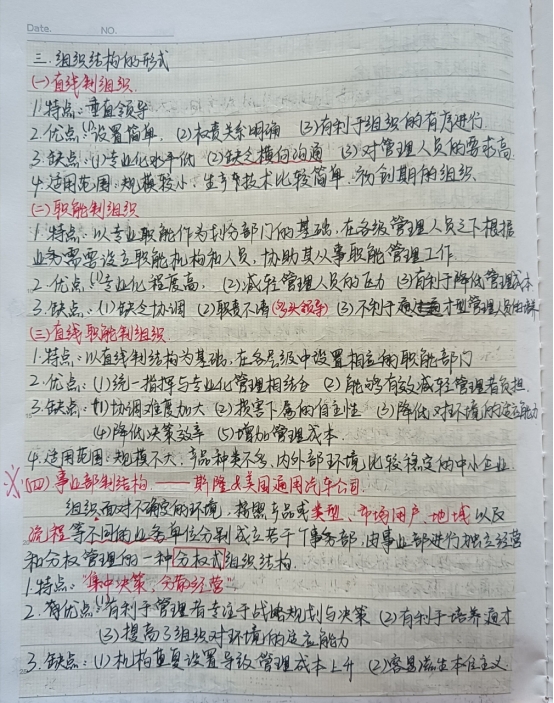 Date. NO.
三. 组织结构的形式
(一)直线制组织.
1.特点: 垂直领导
2.优点:(1)设置简单. (2)权责关系明确 (3)有利于组织的有序进行
3.缺点:(1)专业化水平低 (2)缺乏横向沟通 (3)对管理人员的要求高
4.适用范围: 规模较小. 生产技术比较简单. 初创期的组织.
(二)职能制组织
1.特点: 以专业职能作为划分部门的基础, 在各级管理人员之下根据
业务需要设立职能机构和人员, 协助其从事职能管理工作.
2.优点:(1)专业化程度高. (2)减轻管理人员的压力 (3)有利于降低管理成本
3.缺点:(1)缺乏协调 (2)职责不清(多头领导) (3)不利于通才型管理人员的培养
(三)直线职能制组织.
1.特点: 以直线制结构为基础, 在各层级中设置相应的职能部门
2.优点: (1)统一指挥与专业化管理相结合 (2)能够有效减轻管理者负担.
3.缺点: (1)协调难度加大 (2)损害下属的自主性 (3)降低对环境的适应能力
(4)降低决策效率 (5)增加管理成本.
4.适用范围: 规模不大, 产品种类不多, 内外部环境比较稳定的中小企业.
※(四)事业部制结构——斯隆&美国通用汽车公司.
组织面对不确定的环境, 按照产品或类型、市场用户、地域以及
流程等不同的业务单位分别成立若干个事业部, 由事业部进行独立经营
和分权管理的一种分权式组织结构.
1.特点: "集中决策, 分散经营"
2.优点:(1)有利于管理者专注于战略规划与决策 (2)有利于培养通才
(3)提高了组织对环境的适应能力
3.缺点: (1)机构重复设置导致管理成本上升 (2)容易滋生本位主义.